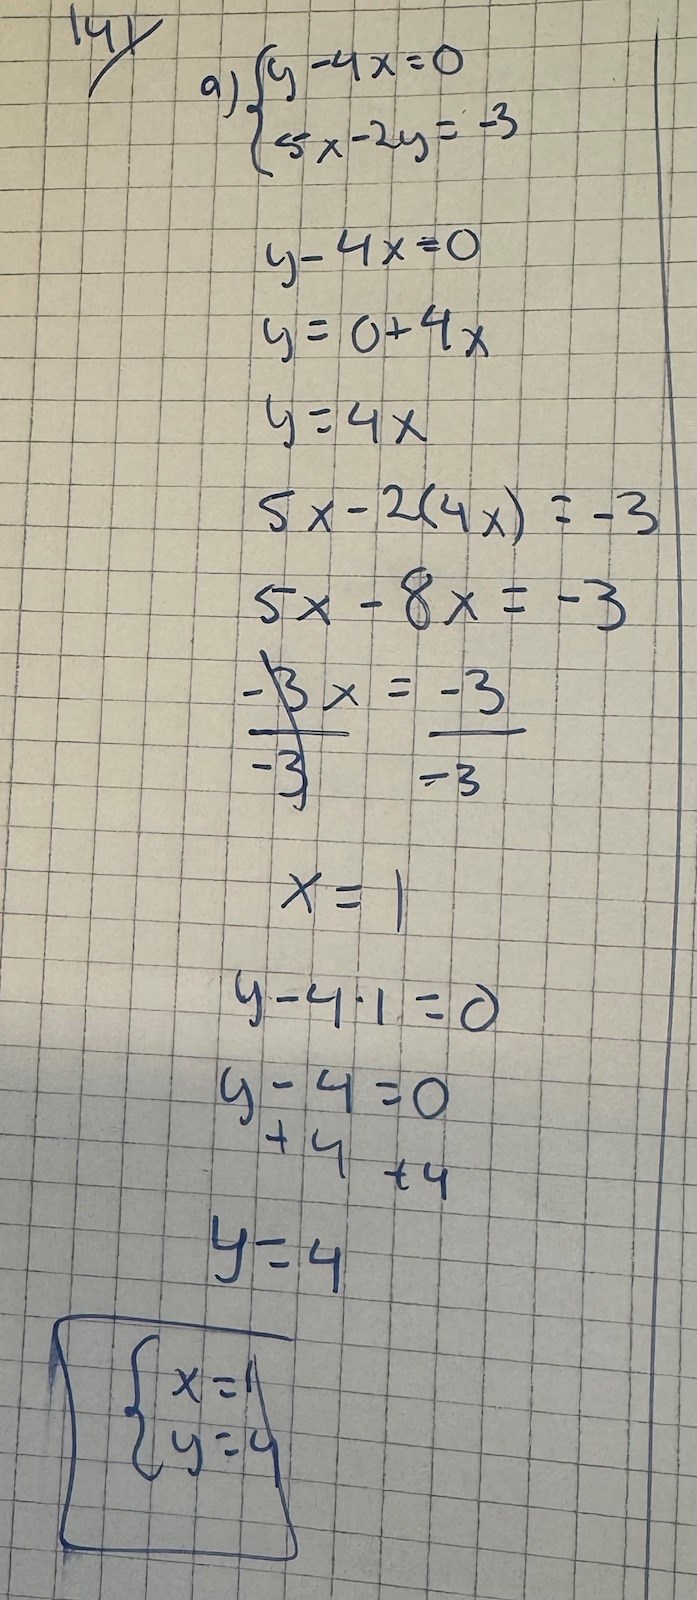 141
a) { y - 4x = 0
5x - 2y = -3
y - 4x = 0
y = 0 + 4x
y = 4x
5x - 2(4x) = -3
5x - 8x = -3
-3x = -3
-3 -3
x = 1
y - 4·1 = 0
y - 4 = 0
+4 +4
y = 4
{ x = 1
y = 4